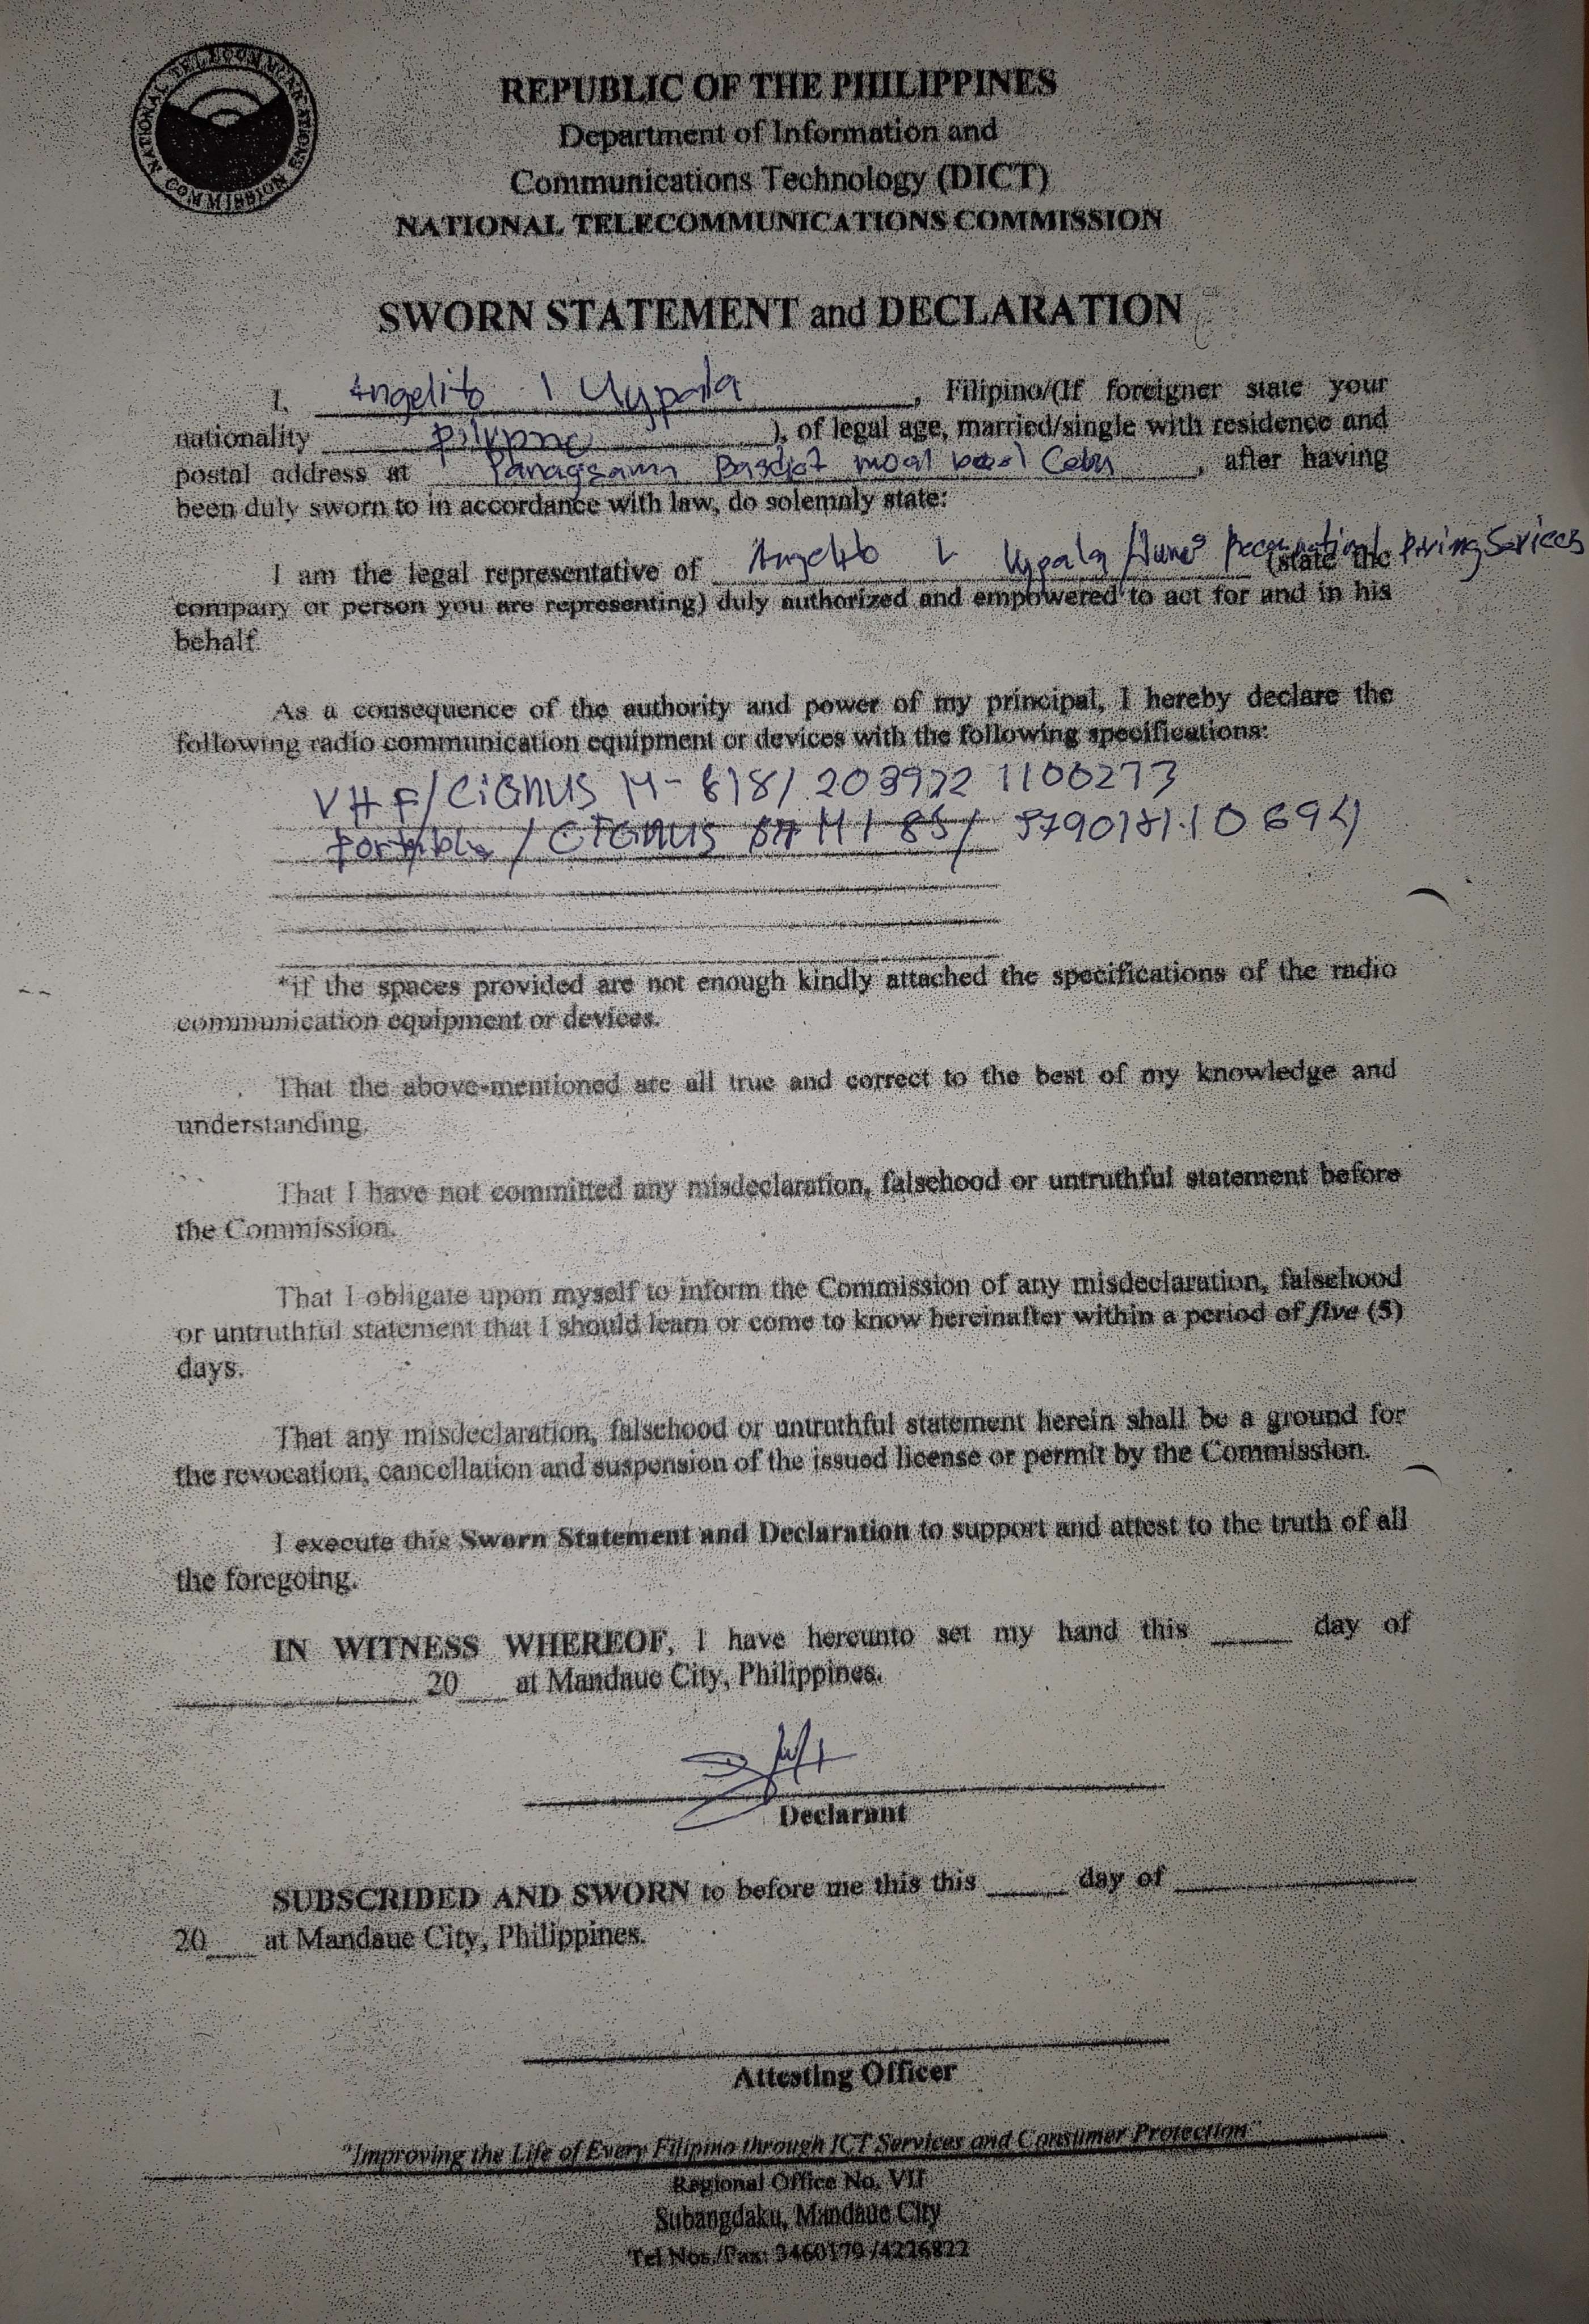 NATIONAL TELECOMMUNICATIONS COMMISSION
REPUBLIC OF THE PHILIPPINES
Department of Information and
Communications Technology (DICT)
NATIONAL TELECOMMUNICATIONS COMMISSION
SWORN STATEMENT and DECLARATION
I, Angelito L Uypala, Filipino/(If foreigner state your
nationality Pilipino), of legal age, married/single with residence and
postal address at Panagsama Basdiot moal boal Cebu, after having
been duly sworn to in accordance with law, do solemnly state:
I am the legal representative of Angelito L Uypala / Recreational Diving Services (state the
company or person you are representing) duly authorized and empowered to act for and in his
behalf.
As a consequence of the authority and power of my principal, I hereby declare the
following radio communication equipment or devices with the following specifications:
VHF/CiGnUS 1100273
Portable / CIGnUS
*if the spaces provided are not enough kindly attached the specifications of the radio
communication equipment or devices.
That the above-mentioned are all true and correct to the best of my knowledge and
understanding.
That I have not committed any misdeclaration, falsehood or untruthful statement before
the Commission.
That I obligate upon myself to inform the Commission of any misdeclaration, falsehood
or untruthful statement that I should learn or come to know hereinafter within a period of five (5)
days.
That any misdeclaration, falsehood or untruthful statement herein shall be a ground for
the revocation, cancellation and suspension of the issued license or permit by the Commission.
I execute this Sworn Statement and Declaration to support and attest to the truth of all
the foregoing.
IN WITNESS WHEREOF, I have hereunto set my hand this ____ day of
____ 20__ at Mandaue City, Philippines.
Declarant
SUBSCRIDED AND SWORN to before me this this ____ day of ____
20__ at Mandaue City, Philippines.
Attesting Officer
"Improving the Life of Every Filipino through ICT Services and Consumer Protection"
Regional Office No. VII
Subangdaku, Mandaue City
Tel Nos./Fax: 3460179 /4226822